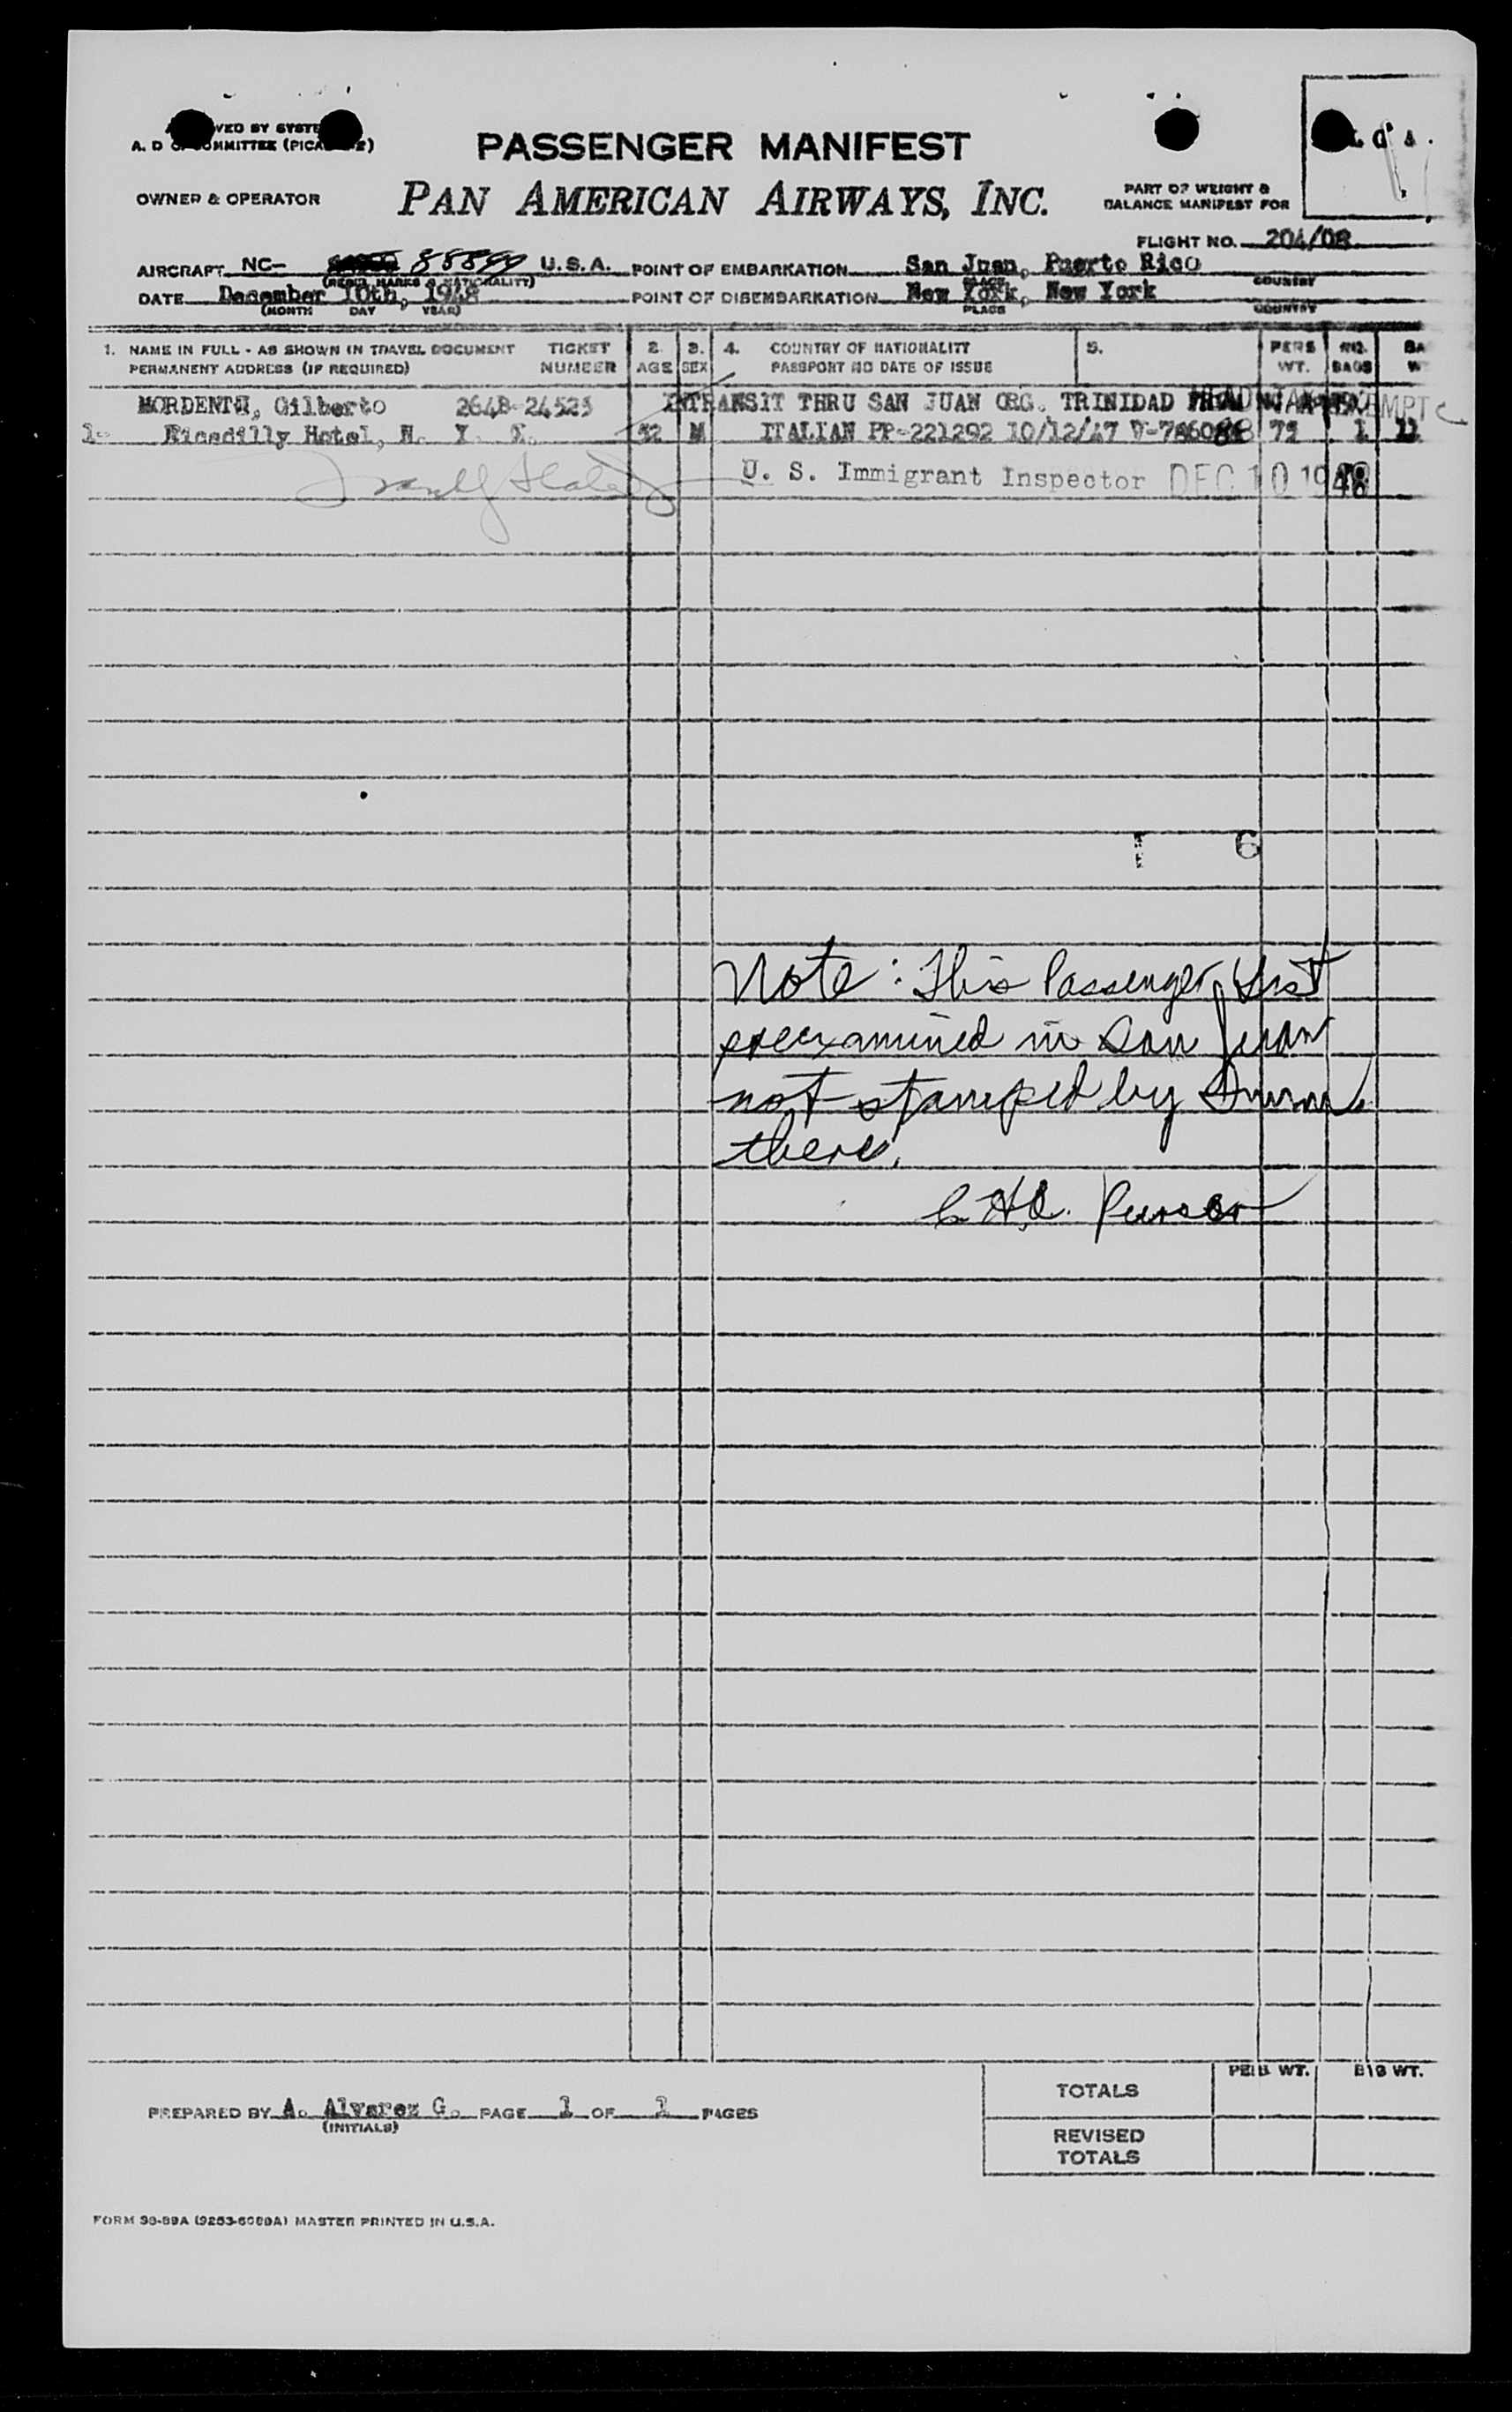 PASSENGER MANIFEST
OWNER & OPERATOR
PAN AMERICAN AIRWAYS, INC.
PART OF WEIGHT &
BALANCE MANIFEST FOR
FLIGHT NO. 204/08
AIRCRAFT NC- U.S.A. POINT OF EMBARKATION San Juan, Puerto Rico
(REGIS. MARKS & NATIONALITY) PLACE COUNTRY
DATE December 10th, 1948 POINT OF DISEMBARKATION New York, New York
(MONTH DAY YEAR) PLACE COUNTRY
1. NAME IN FULL - AS SHOWN IN TRAVEL DOCUMENT TICKET 2. 3. 4. COUNTRY OF NATIONALITY 5. PERS NO. BA
PERMANENT ADDRESS (IF REQUIRED) NUMBER AGE SEX PASSPORT NO DATE OF ISSUE WT. BAGS W
Gilberto 264B-24523 INTRANSIT THRU SAN JUAN ORG. TRINIDAD
1- Picadilly Hotel, N. Y. 32 M ITALIAN PP-221292 10/12/47 1
U. S. Immigrant Inspector DEC 10 1948
6
Note: This Passenger List
preexamined in San Juan
not stamped by
there.
Purser
TOTALS PERS WT. BAG WT.
PREPARED BY A. Alvarez G. PAGE 1 OF 1 PAGES
(INITIALS)
REVISED
TOTALS
MASTER PRINTED IN U.S.A.